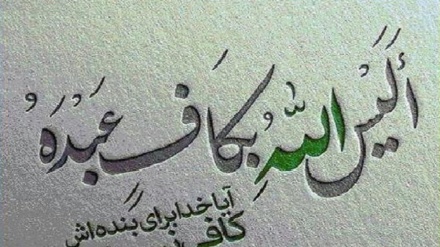 أَلَیْسَ اللّٰهُ بِکَافٍ عَبْدَهُ
آیا خدا برای بنده‌اش
کافی